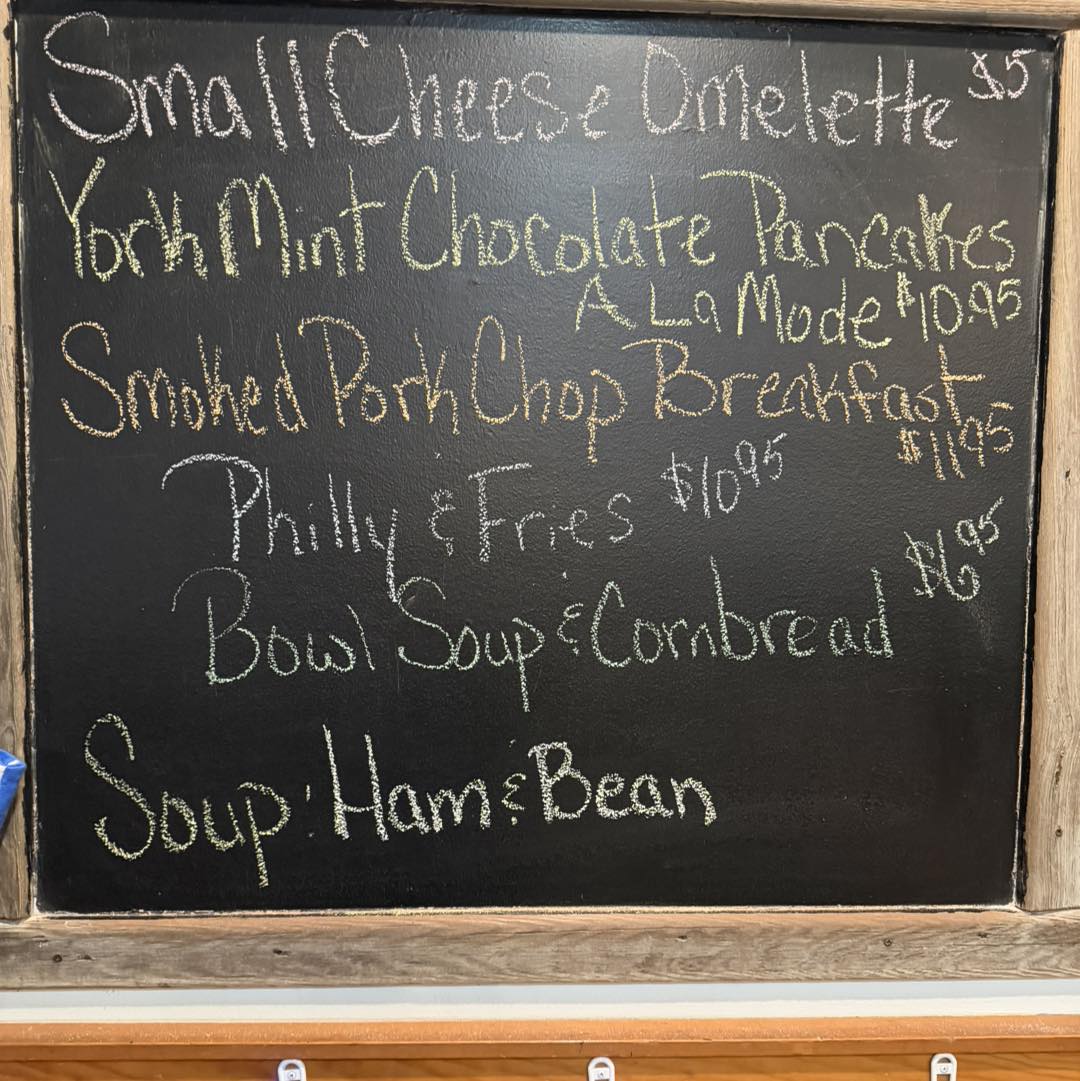 Small Cheese Omelette $5
York Mint Chocolate Pancakes
A La Mode $10.95
Smoked Pork Chop Breakfast
$11.95
Philly & Fries $10.95
Bowl Soup & Cornbread $6.95
Soup: Ham & Bean